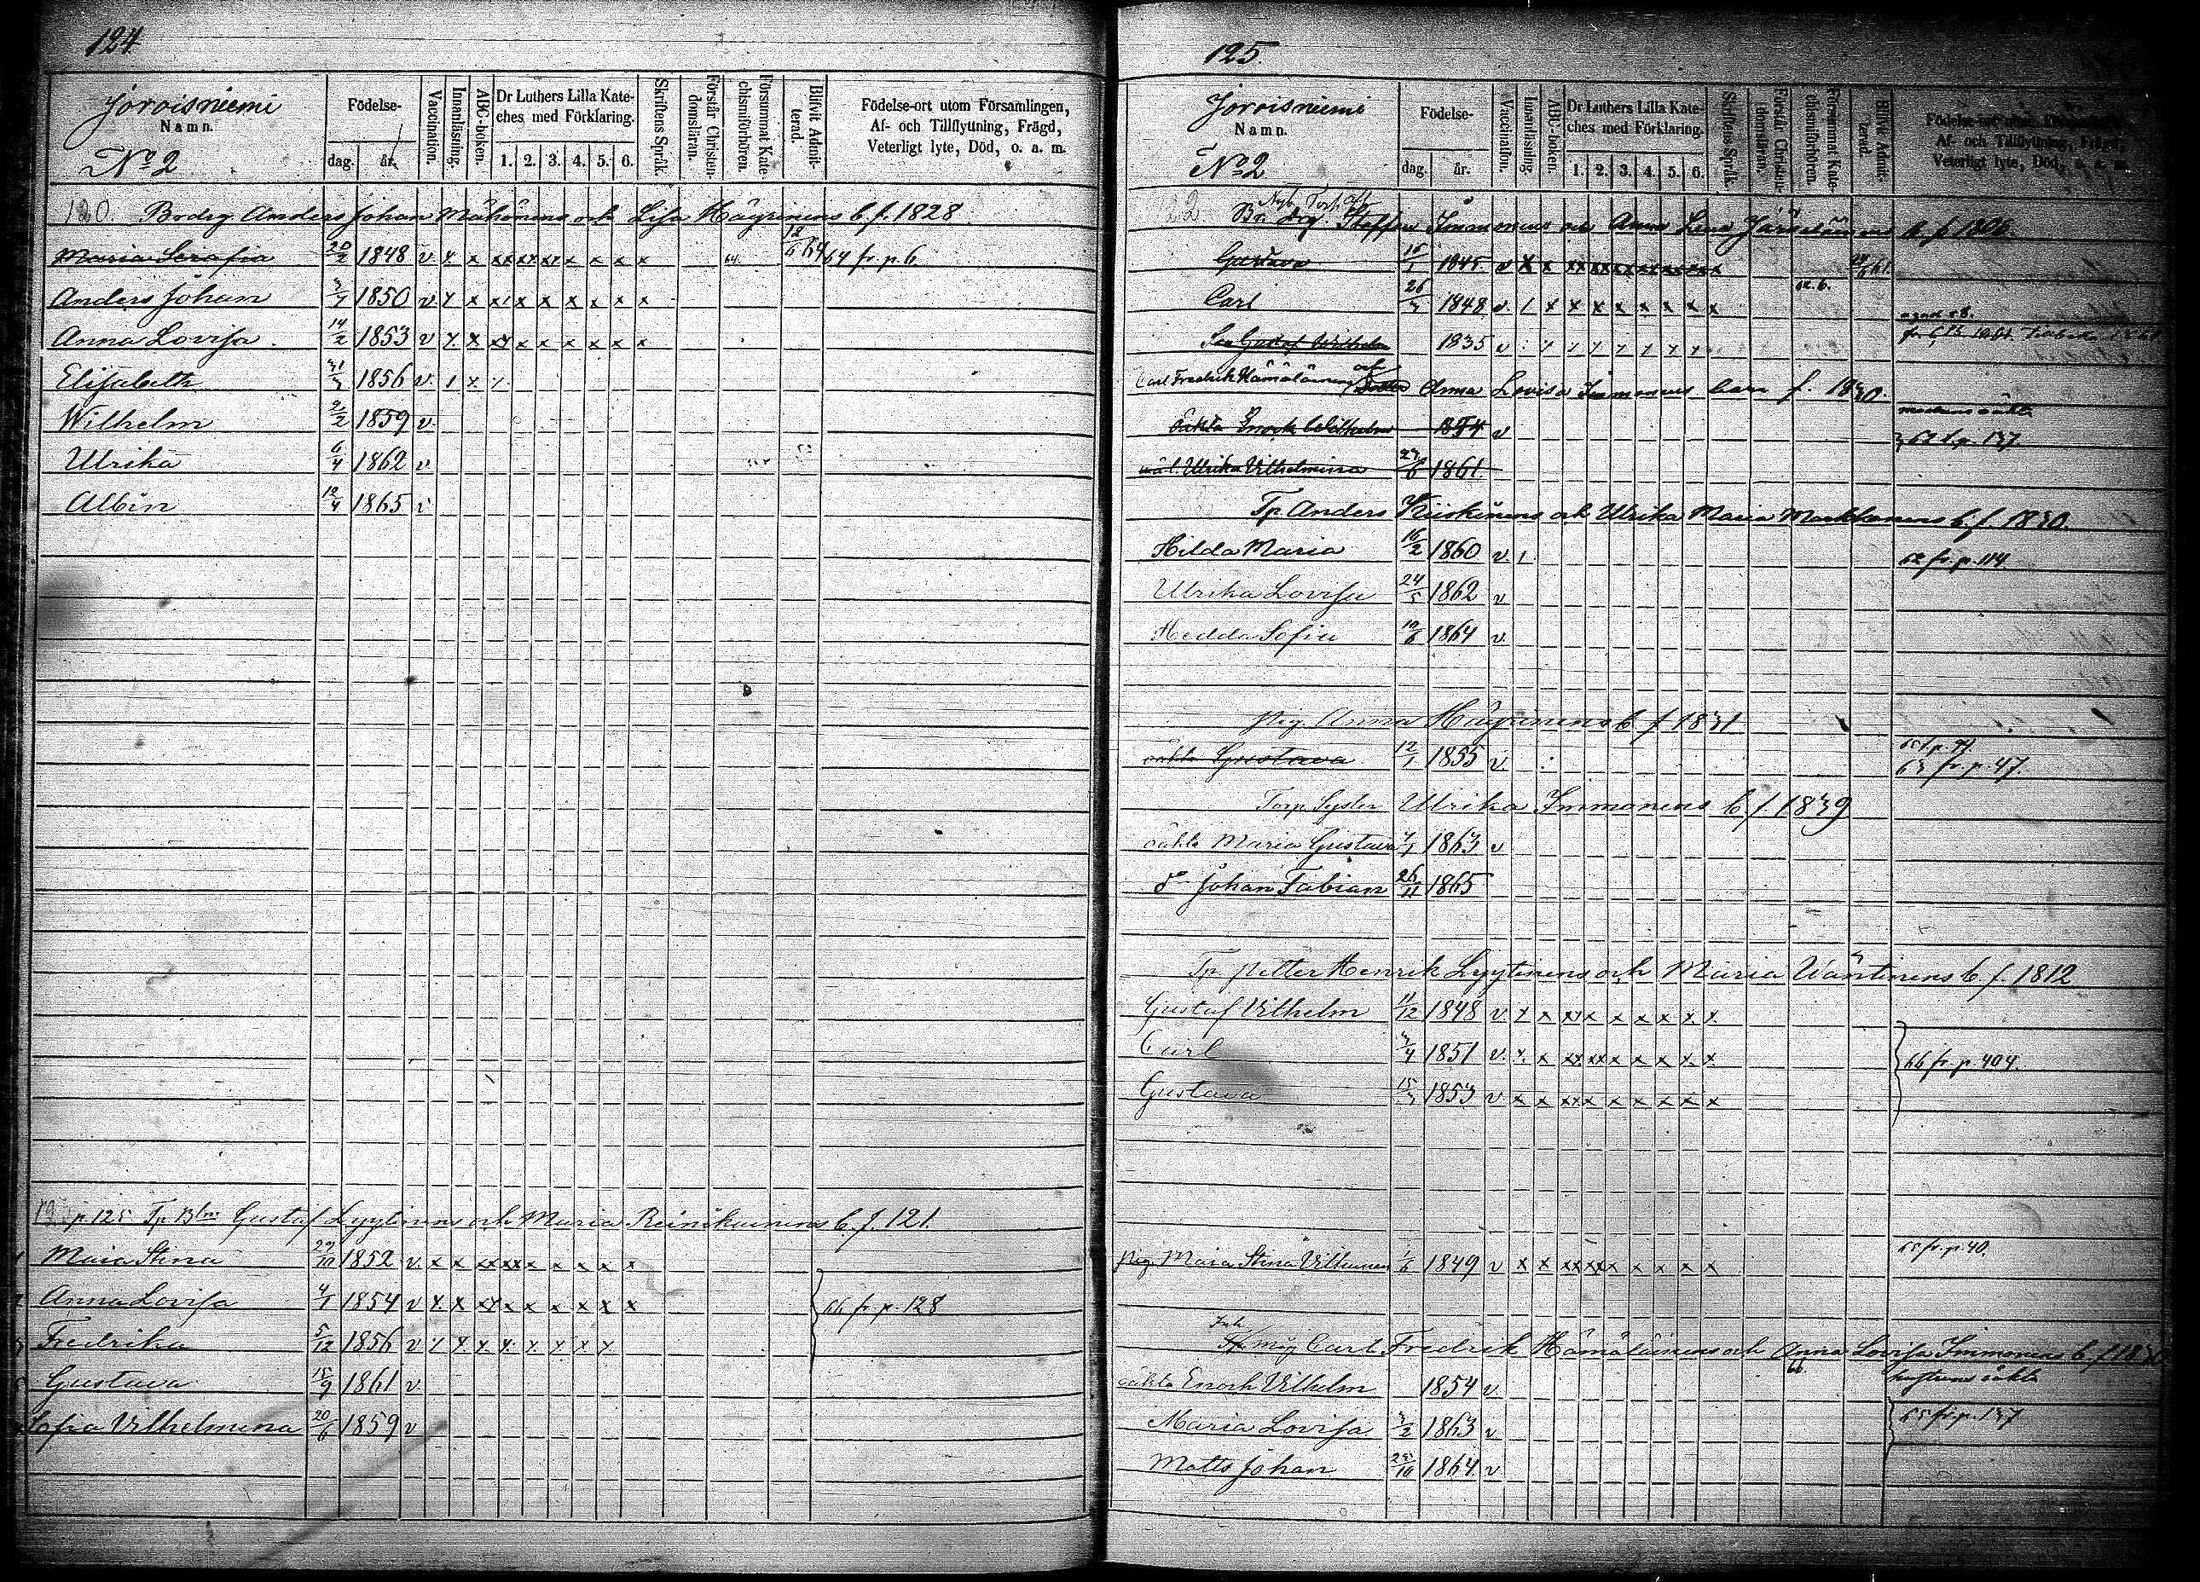 124
Joroisniemi
Namn.
No 2
Födelse-
dag. år.
Vaccination.
Innanläsning.
ABC-boken.
Dr Luthers Lilla Kate-
ches med Förklaring.
1. 2. 3. 4. 5. 6.
Skriftens Språk.
Förstår Christen-
domsläran.
Försummat Kate-
chismiförhören.
Blifvit Admit-
terad.
Födelse-ort utom Församlingen,
Af- och Tillflyttning, Frägd,
Veterligt lyte, Död, o. a. m.
120. Brdrg Anders Johan Mähönens och Lisa Häyrinens b. f. 1828
Maria Serafia 20/2 1848 v x x xx xx xx x x x x 64 12/6 64 64 fr. p. 6.
Anders Johan 3/7 1850 v x x x x x x x x x
Anna Lovisa 14/2 1853 v x x xx x x x x x x
Elisabeth 31/3 1856 v. 1 x x
Wilhelm 2/2 1859 v
Ulrika 6/4 1862 v
Albin 12/4 1865 v
p. 125 Tp Gustaf Lyytinens och Maria Reinikainens b. f. 121.
Maia Stina 29/10 1852 v. x x xx xx x x x x x
Anna Lovisa 4/1 1854 v x x xx x x x x x x
66 fr. p. 128
Fredrika 5/12 1856 v x x x x x x x x
Gustava 15/9 1861 v
Sofia Vilhelmina 20/6 1859 v
125.
Joroisniemi
Namn.
No 2
Födelse-
dag. år.
Vaccination.
Innanläsning
ABC-boken.
Dr Luthers Lilla Kate-
ches med Förklaring.
1. 2. 3. 4. 5. 6.
Skriftens Språk.
Förstår Christen-
domsläran.
Försummat Kate-
chismiförhören.
Blifvit Admit-
terad.
Födelse-ort utom Församlingen,
Af- och Tillflyttning, Frägd,
Veterligt lyte, Död, o. a. m.
Steffan Immonens och Anna Lena b. f. 1806.
Gustava 15/1 1845 v x x xx xx xx xx xx xx x
Carl 26/3 1848 v. 1 x x x x x x x x
Son Gustaf Wilhelm 1835 v
Carl Fredrik Hämäläinens och Anna Lovisa Immonens barn f. 1830.
oäkta Enock Wilhelm 1854 v
Ulrika Vilhelmina 27/6 1861
Tp. Anders Kiiskinens och Ulrika Maria Markkanens b. f. 1830.
Hilda Maria 16/2 1860 v. 1 62 fr. p. 114.
Ulrika Lovisa 24/5 1862 v
Hedda Sofia 10/6 1864 v.
Pig. Anna Häyrinens b f 1831
oäkta Gustava 12/1 1855 v. 63 fr. p. 47.
Torp. Syster Ulrika Immonens b. f. 1839
oäkta Maria Gustava 1863 v
do Johan Fabian 26/11 1865
Tp. Petter Henrik Lyytinens och Maria Wäntinens b f. 1812
Gustaf Vilhelm 11/12 1848 v x x xx x x x x x x
Carl 3/4 1851 v. x. x xx xx x x x x x
66 fr. p. 404.
Gustava 15/3 1853 v x x xx x x x x x x
65 fr. p. 40.
Pig Maia Stina Vilhunen 1/6 1849 v x x xx xx x x x x x
Inh
Carl Fredrik Hämäläinens och Anna Lovisa Immonens b. f 1830
hustruns oäkta
oäkta Enoch Vilhelm 1854 v
65 fr. p. 137
Maria Lovisa 3/2 1863 v
Matts Johan 25/10 1864 v